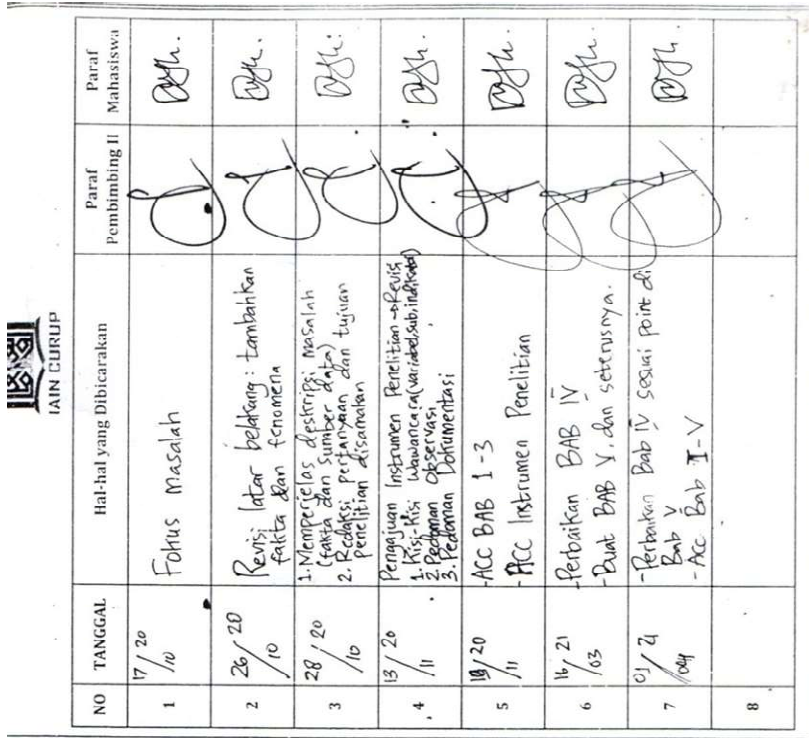 IAIN CURUP
NO TANGGAL Hal-hal yang Dibicarakan Paraf Pembimbing II Paraf Mahasiswa
1 17/20 10 Fokus Masalah
2 26/20 10 Revisi latar belakang : tambahkan
fakta dan fenomena
3 28/20 10 1. Memperjelas deskripsi masalah
(fakta dan sumber data)
2. Redaksi pertanyaan dan tujuan
penelitian disamakan
4 13/20 11 Pengajuan Instrumen Penelitian → Revisi
1. Kisi-Kisi Wawancara (variabel, sub, indikator)
2. Pedoman Observasi
3. Pedoman Dokumentasi
5 /20 11 - ACC BAB 1-3
- ACC Instrumen Penelitian
6 16/21 03 - Perbaikan BAB IV
- Buat BAB V. dan seterusnya.
7 01/21 04 - Perbaikan Bab IV sesuai point di
Bab V
- Acc Bab I-V
8